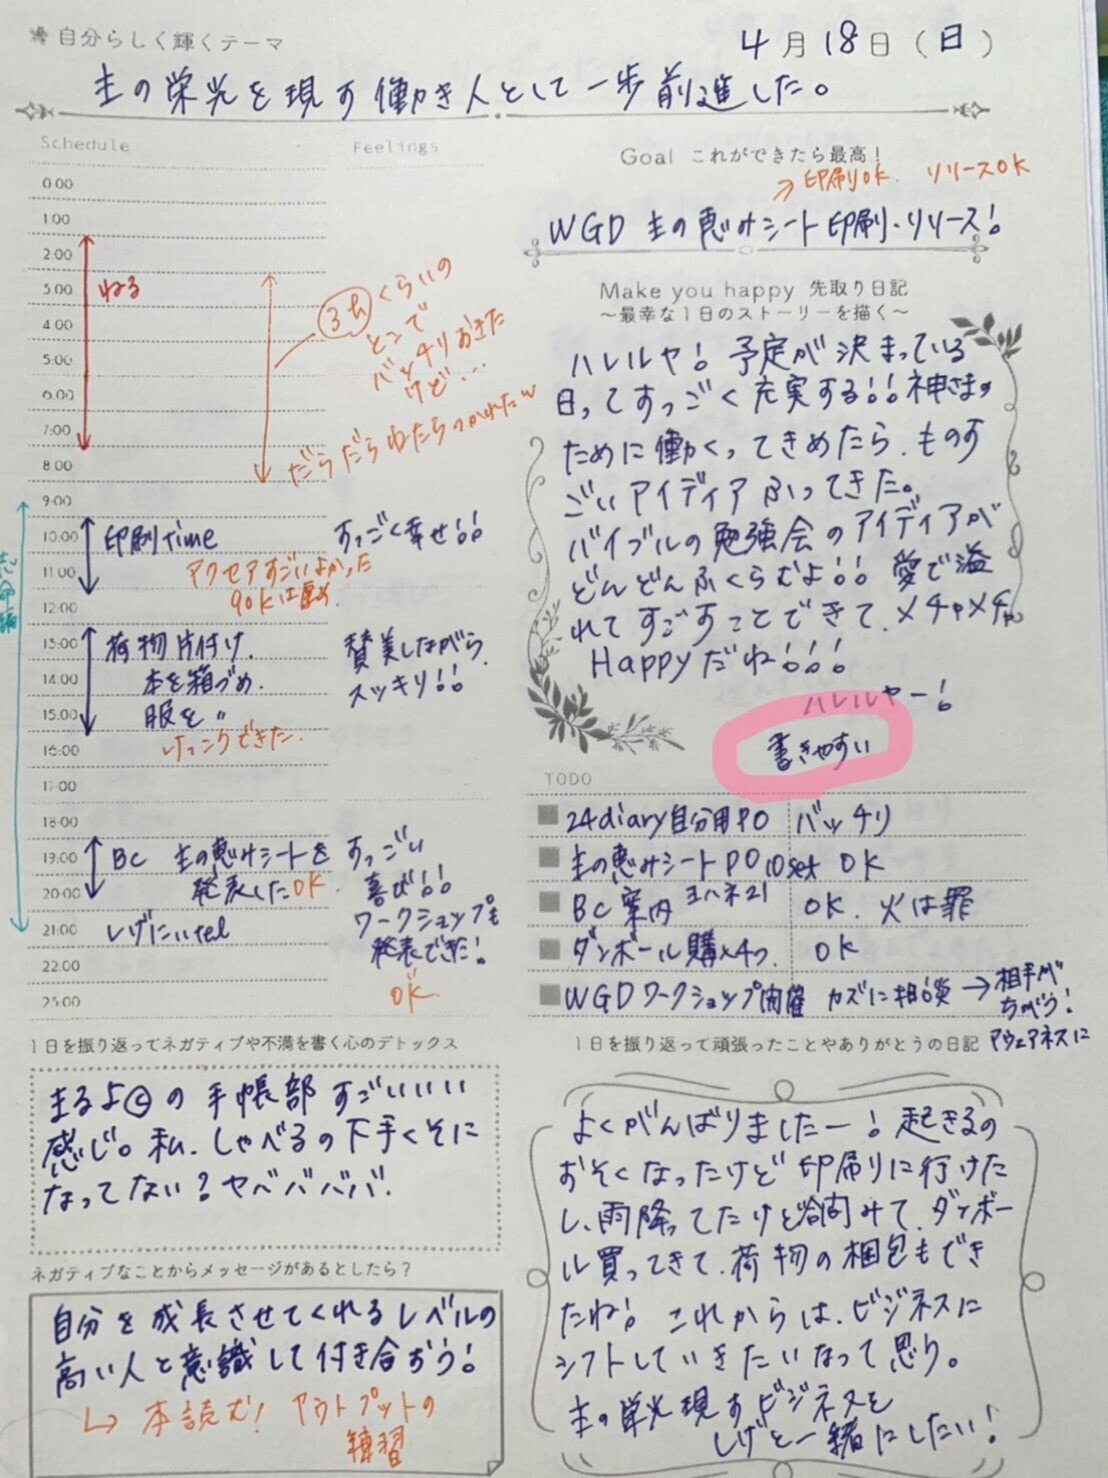 自分らしく輝くテーマ
4月18日(日)
主の栄光を現す働き人として一歩前進した。
Schedule
Feelings
0:00
1:00
2:00
3:00
ねる
4:00
5:00
6:00
7:00
8:00
3hくらいの
とこで
バッチリおきた
けど…
だらだらねたらつかれたw
9:00
10:00 印刷Time すっごく幸せ!!
11:00 アクセアすごいよかった
90Kは厚め
12:00
13:00 荷物片付け、 賛美しながら
14:00 本を箱づめ、 スッキリ!!
15:00 服を〃
けっこうできた
16:00
17:00
18:00
19:00 BC 主の恵みシートを すっごい
20:00 発表したOK. 喜び!!
21:00 しげにいtel ワークショップも
22:00 発表できた!
23:00 OK
Goal これができたら最高!
→印刷OK. リリースOK
WGD 主の恵みシート印刷・リリース!
Make you happy 先取り日記
~最幸な1日のストーリーを描く~
ハレルヤ! 予定が決まっている
日ってすっごく充実する!!神さまの
ために働くってきめたら、ものす
ごいアイディアふってきた。
バイブルの勉強会のアイディアが
どんどんふくらむよ!! 愛で溢
れてすごすことできて、メチャメチャ
Happyだね!!!
ハレルヤー!
書きやすい
TODO
24diary自分用PO バッチリ
主の恵みシートPO 10set OK
BC案内 ヨハネ21 OK. 火は罪
ダンボール購入4つ. OK
WGDワークショップ開催 カズに相談 →相手が
ちがう!
アウェアネスに
1日を振り返ってネガティブや不満を書く心のデトックス
まるよ©の手帳部すごいいい
感じ。私、しゃべるの下手くそに
なってない?ヤバババババ.
ネガティブなことからメッセージがあるとしたら?
自分を成長させてくれるレベルの
高い人と意識して付き合おう!
↳ 本読む! アウトプットの
練習
1日を振り返って頑張ったことやありがとうの日記
よくがんばりましたー! 起きるの
おそくなったけど印刷りに行けた
し、雨降ってたけど合間みて、ダンボー
ル買ってきて、荷物の梱包もでき
たね! これからは、ビジネスに
シフトしていきたいなって思う。
主の栄光現すビジネスを
しげと一緒にしたい!